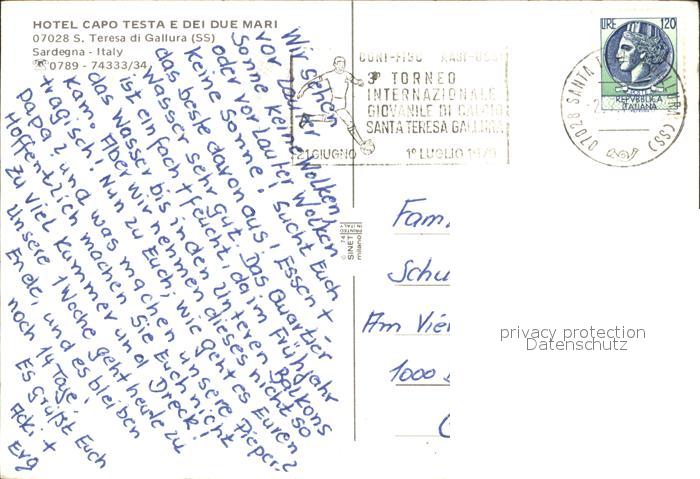 HOTEL CAPO TESTA E DEI DUE MARI
07028 S. Teresa di Gallura (SS)
Sardegna - Italy
☎ 0789 - 74333/34
Wir sehen
vor lauter
Sonne keine Wolken,
oder vor lauter Wolken
keine Sonne! Sucht Euch
das beste daraus! Essen +
Wasser sehr gut. Das Quartier
ist einfach + feucht, da im Frühjahr
das Wasser bis in den unteren Balkons
kam. Aber wir nehmen dieses nicht so
tragisch! Nun zu Euch, wie geht es Euren
Papa? und was machen unsere Pieper?
Hoffentlich machen Sie Euch nicht
zu viel Kummer und Dreck!
Unsere 1 Woche geht heute zu
Ende, und es bleiben
noch 14 Tage!
Es Grüßt Euch
Acki +
3º TORNEO
INTERNAZIONALE
GIOVANILE DI CALCIO
SANTA TERESA GALLURA
21 GIUGNO 1º LUGLIO 1979
LIRE 120
REPVBBLICA
ITALIANA
07028 SANTA (SS)
PRINTED
IN ITALY
© 74
SINET
milano
Fam
Schu
Am Vie
1000
privacy protection
Datenschutz